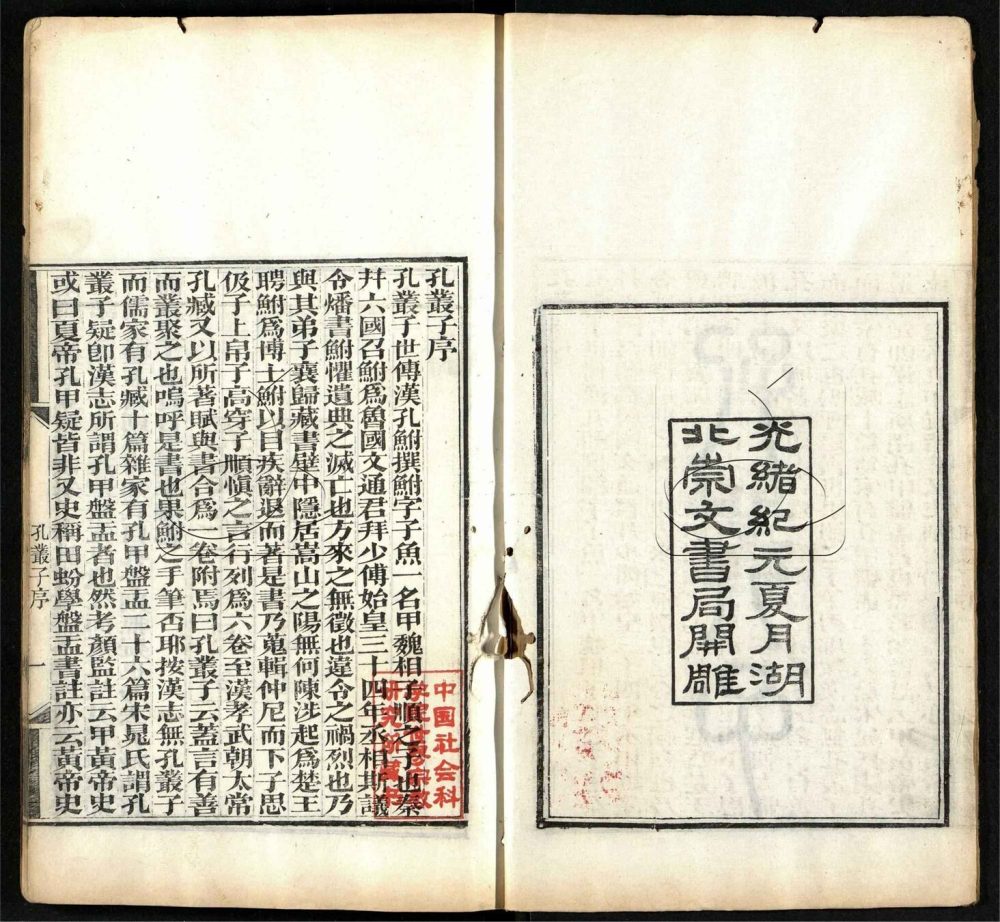 光緒紀元夏月湖
北崇文書局開雕
孔叢子序
孔叢子世傳漢孔鮒撰鮒字子魚一名甲魏相子順之子也秦
幷六國召鮒爲魯國文通君拜少傅始皇三十四年丞相斯議
令燔書鮒懼遺典之滅亡也方來之無徵也違令之禍烈也乃
與其弟子襄歸藏書壁中隱居嵩山之陽無何陳涉起爲楚王
聘鮒爲博士鮒以目疾辭退而著是書乃蒐輯仲尼而下子思
伋子上帛子高穿子順愼之言行列爲六卷至漢孝武朝太常
孔臧又以所著賦與書合爲一卷附焉曰孔叢子云蓋言有善
而叢聚之也嗚呼是書也果鮒之手筆否耶按漢志無孔叢子
而儒家有孔臧十篇雜家有孔甲盤盂二十六篇宋晁氏謂孔
叢子疑卽漢志所謂孔甲盤盂者也然考顏監註云甲黃帝史
或曰夏帝孔甲疑皆非又史稱田蚡學盤盂書註亦云黃帝史
孔叢子序
一
中国社会科
研究所